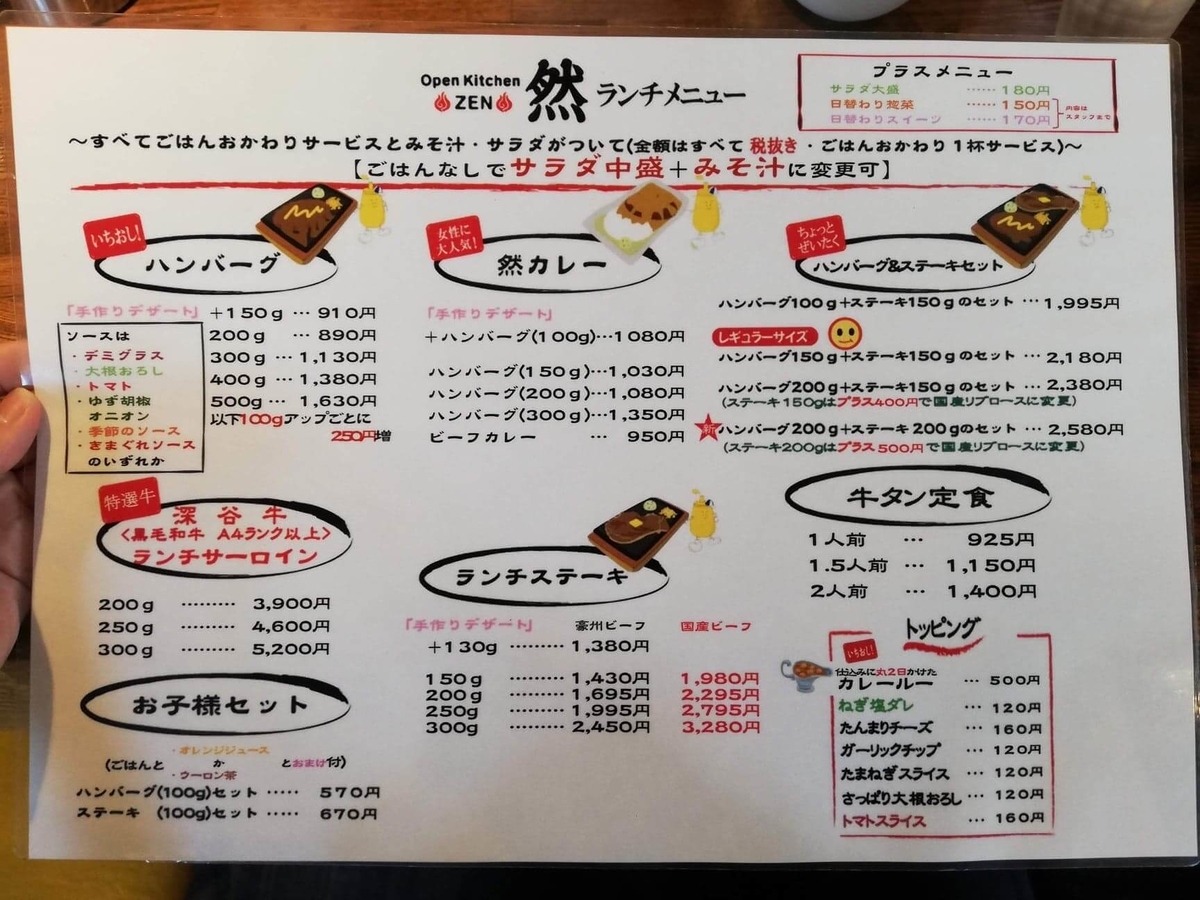 Open Kitchen
ZEN
然 ランチメニュー
プラスメニュー
サラダ大盛 ‥‥‥ 180円
日替わり惣菜 ‥‥‥ 150円
日替わりスイーツ ‥‥‥ 170円
内容は
スタッフまで
～すべてごはんおかわりサービスとみそ汁・サラダがついて(金額はすべて 税抜き・ごはんおかわり1杯サービス)～
【ごはんなしでサラダ中盛＋みそ汁に変更可】
いちおし!
ハンバーグ
「手作りデザート」＋150g … 910円
200g … 890円
300g … 1,130円
400g … 1,380円
500g … 1,630円
以下100gアップごとに
250円増
ソースは
・デミグラス
・大根おろし
・トマト
・ゆず胡椒
オニオン
・季節のソース
・きまぐれソース
のいずれか
女性に
大人気!
然カレー
「手作りデザート」
＋ハンバーグ(100g)…1080円
ハンバーグ(150g)…1,030円
ハンバーグ(200g)…1,080円
ハンバーグ(300g)…1,350円
ビーフカレー … 950円
ちょっと
ぜいたく
ハンバーグ&ステーキセット
ハンバーグ100g＋ステーキ150gのセット … 1,995円
レギュラーサイズ
ハンバーグ150g＋ステーキ150gのセット … 2,180円
ハンバーグ200g＋ステーキ150gのセット … 2,380円
(ステーキ150gはプラス400円で国産リブロースに変更)
新
ハンバーグ200g＋ステーキ200gのセット … 2,580円
(ステーキ200gはプラス500円で国産リブロースに変更)
特選牛
深谷牛
<黒毛和牛 A4ランク以上>
ランチサーロイン
200g ……… 3,900円
250g ……… 4,600円
300g ……… 5,200円
お子様セット
(ごはんと ・オレンジジュース
か
・ウーロン茶
とおまけ付)
ハンバーグ(100g)セット ‥‥‥ 570円
ステーキ (100g)セット ‥‥‥ 670円
ランチステーキ
「手作りデザート」 豪州ビーフ 国産ビーフ
＋130g ……… 1,380円
150g ……… 1,430円 1,980円
200g ……… 1,695円 2,295円
250g ……… 1,995円 2,795円
300g ……… 2,450円 3,280円
牛タン定食
1人前 … 925円
1.5人前 … 1,150円
2人前 … 1,400円
トッピング
いちおし!
仕込みに丸2日かけた
カレールー … 500円
ねぎ塩ダレ … 120円
たんまりチーズ … 160円
ガーリックチップ … 120円
たまねぎスライス … 120円
さっぱり大根おろし … 120円
トマトスライス … 160円